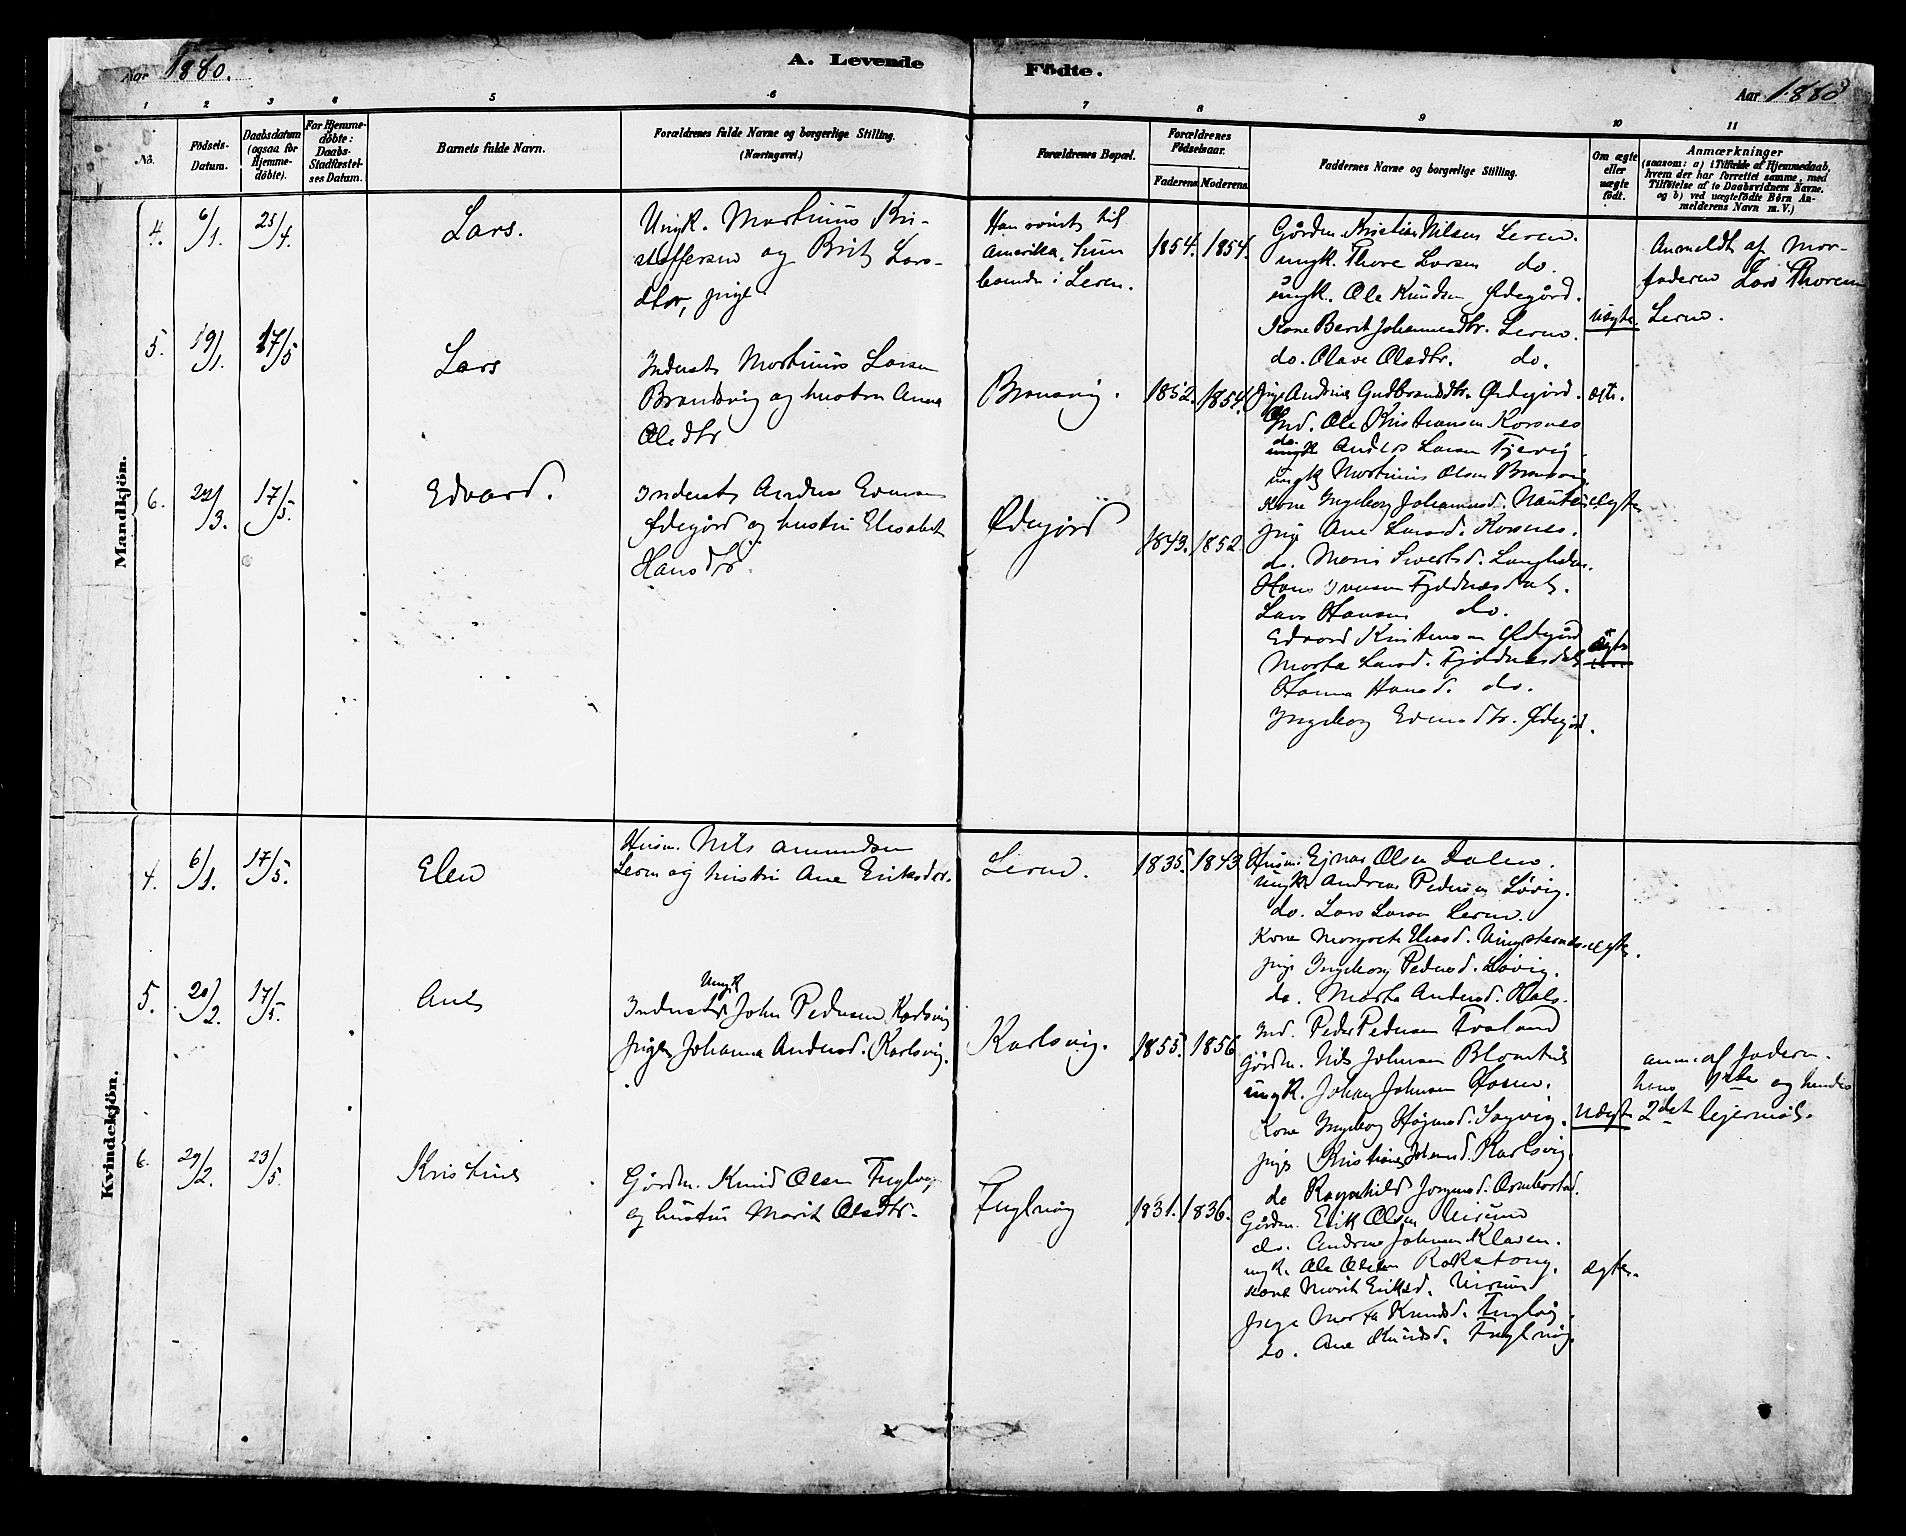 Aar 1880.
A. Levende Födte.
Aar 1880
1 2 3 4 5 6 7 8 9 10 11
No.
Födsels-
Datum.
Daabsdatum
(ogsaa for
Hjemme-
döbte).
For Hjemme-
döbte:
Daabs-
Stadfæstel-
ses Datum.
Barnets fulde Navn.
Forældrenes fulde Navne og borgerlige Stilling.
(Næringsvei.)
Forældrenes Bopæl.
Forældrenes
Födselsaar.
Faderens Moderens
Faddernes Navne og borgerlige Stilling.
Om ægte
eller
uægte
födt.
Anmærkninger
(saasom: a) i Tilfælde af Hjemmedaab,
hvem der har forrettet samme, med
Tilföielse af to Daabsvidners Navne.
og b) ved uægtefödte Börn An-
melderens Navn m. V.)
Mandkjön.
4. 6/1. 25/4. Lars.
Ungk. Martinus Kri-
stoffersen og Brit Lars-
dtr, pige
Han rømt til
Amerika, hun
boende i Leren.
1854. 1854.
Gårdm. Kristian Nilsen Leren.
ungk. Thore Larsen do.
ungk. Ole Knudsen Ødegård.
Kone Berit Johannesdtr. Leren.
do. Olave Olsdtr. do.
Uægte.
Anmeldt af Mor-
faderen Lars Thoresen
Leren.
5. 19/1. 17/5 Lars
Inderst Martinus Larsen
Bronsvig og hustru Anne
Olsdtr
Bronsvig. 1852. 1854.
Pige Andrine Gudbrandsdtr. Ødegård.
Ind. Ole Kristiansen Korsnes
do. Anders Larsen
ungk Martinus Olsen Bronsvig
Kone Ingeborg Johannesd.
pige Ane Larsd. Korsnes.
do. Maris Sivertsd.
ægte.
ægte
6. 22/3. 17/5. Edvard.
Inderst Andreas
Ødegård og hustru Elisabet
Hansdtr.
Ødegård 1843. 1852
Hans Iversen Fjeldnesdal.
Lars Hansen do.
Edvard Kristensen Ødegård
Marta Larsd. Fjeldnesdal
Hanna Hansd. do.
Ingeborg Ødegård.
ægte
Kvindekjön.
4. 6/1. 17/5. Elen
Husm. Nils Amundsen
Leren og hustru Ane Eriksdtr.
Leren. 1835. 1843.
Husm. Ejnar Olsen Dalen.
Ungk. Andreas Pedersen Løvig.
do. Lars Larsen Leren.
Kone Margrete
pige Ingeborg Pedersd. Løvig.
do. Marta Andersd. Hals.
ægte.
5. 20/2. 17/5. Ane
Ungk
Inderst John Pedersen Karlsvig
Pigen Johanna Andersd. Karlsvig.
Karlsvig. 1855. 1856
Ind. Peder Pedersen
Gårdm. Nils Johnsen
ungk. Johan Johnsen
Kone Ingeborg
pige Kristiane Johansd. Karlsvig.
do Ragnhild
Uægte
anm. af faderen.
hans 1ste og hendes
2det lejermål.
6. 29/2. 23/5. Kristine
Gårdm. Knud Olsen Fuglvåg
og hustru Marit Olsdtr.
Fuglvåg 1831. 1836.
Gårdm. Erik Olsen
do. Andreas Johnsen Klaven.
ungk. Ole Olsen
kone Marit Eriksd.
Pige Marta Knudsd. Fuglvåg.
do. Ane Knudsd. Fuglvåg.
ægte.